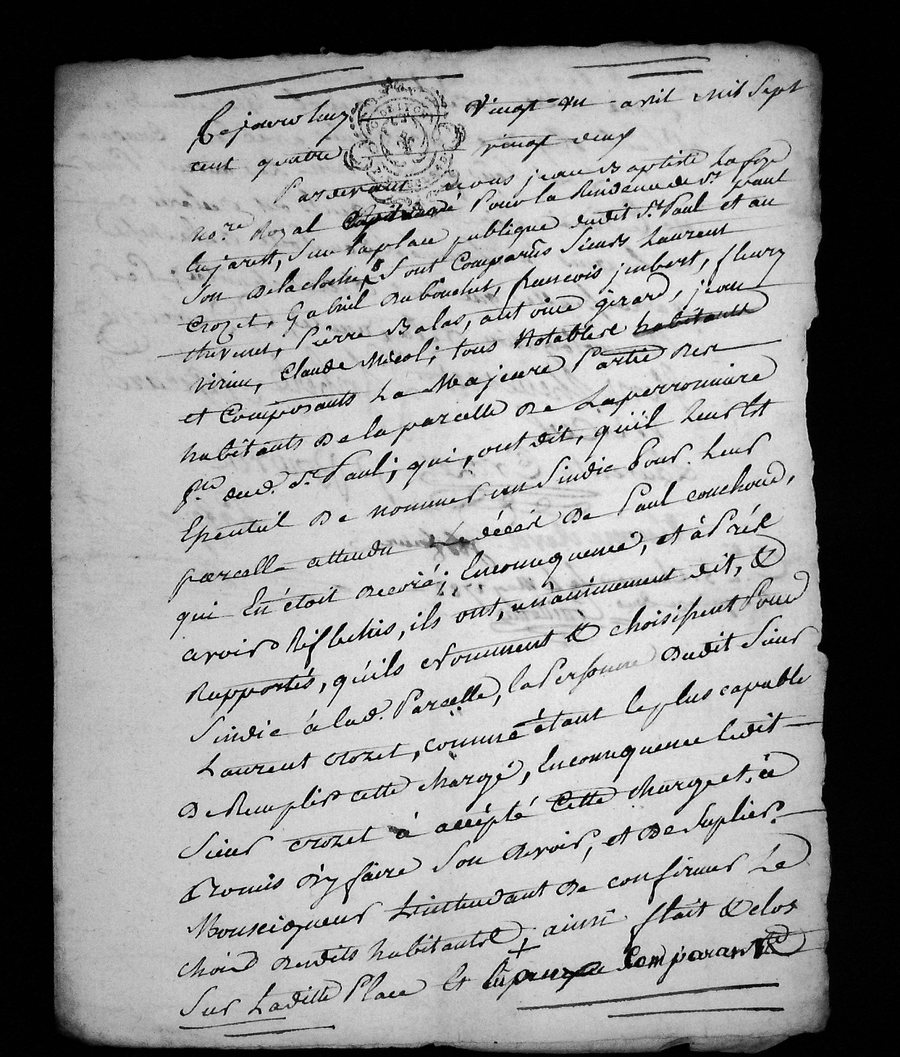 Cejourdhuy vingt un avril mil sept
cent quatre vingt deux
Pardevant nous jean Baptiste Lafoge
No.re Royal Pour la Residence de St. paul
en jarest, Sur la place publique dudit St. Paul et au
Son de la cloche, Sont Comparus Sieurs Laurent
Crozet, Gabriel Dubouchet, françois jmbert, fleury
thevenet, Pierre Balas, antoine gérard, jean
virieu, Claude Nicol; tous Notables habitants
et Composants La Majeure Partie des
habitants de la parcelle de Laperronniere
p.sse dud. St. Paul; qui, ont dit, qu'il leur est
Epentiel de nommer un Sindic Pour leur
parcelle attendu Le décès de Paul couchoud,
qui En étoit decoré; Enconsequence, et àprés
avoir Réflechis, ils ont, unanimement dit, &
Rapportés, qu'ils nomment & choisipent Pour
Sindic à lad. Parcelle, la Personne dudit Sieur
Laurent crozet, comme étant le plus capable
De Remplir cette chargé, Enconsequence ledit
Sieur crozet à accépté Cette charge et à
Promis d'y faire Son devoir, et de Suplier
Monseigneur L'intendant de confirmer Le
choix desdits habitants + ainsi fait & clos
Sur Laditte Place Et Comparants